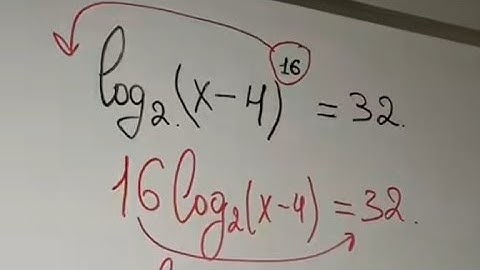 log₂(x-4)¹⁶ = 32.
16 log₂(x-4) = 32.